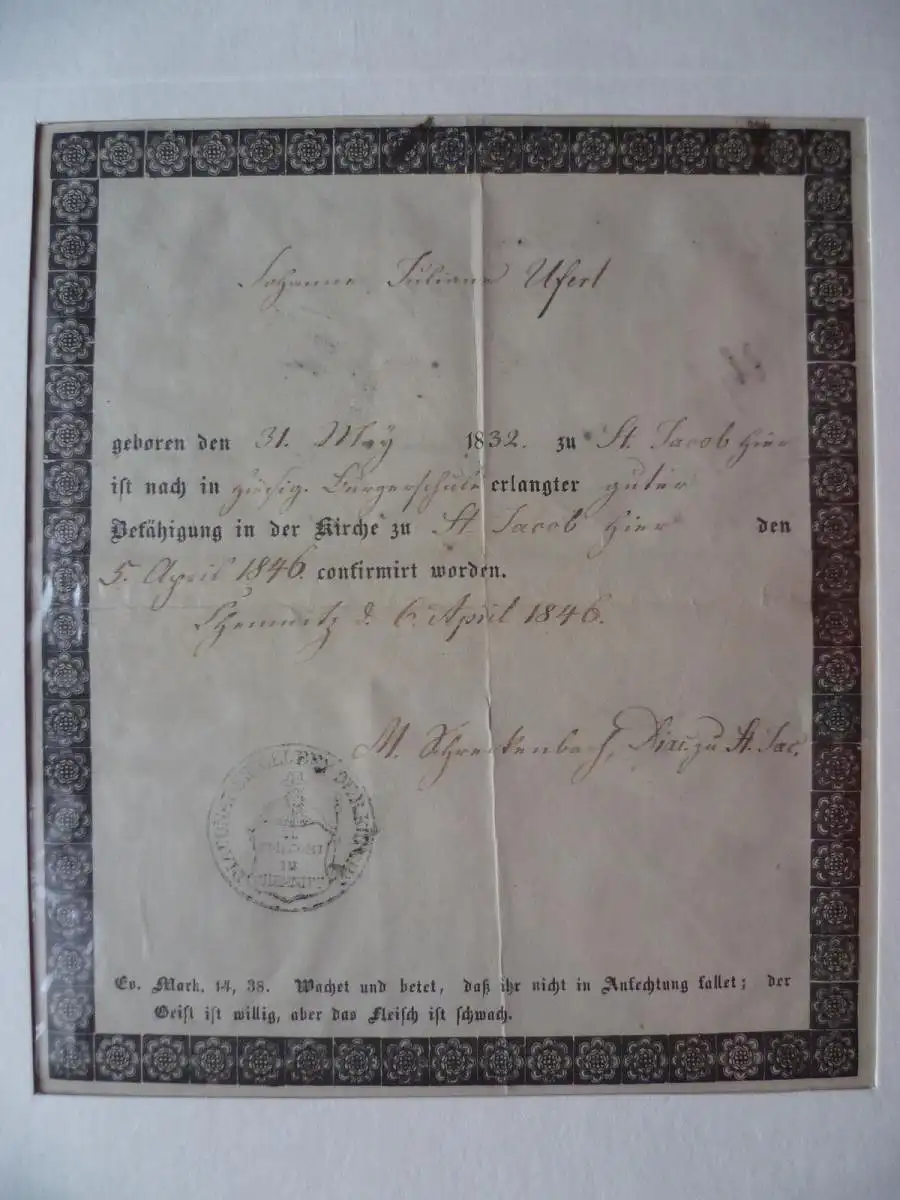 Johanne Juliane Ufert
geboren den 31. May 1832. zu St. Jacob hier
iſt nach in hiesig. Bürgerschule erlangter guter
Befähigung in der Kirche zu St. Jacob hier den
5. April 1846. confirmirt worden.
Chemnitz d. 6. April 1846.
M. Schreckenbach, Diac. zu St. Jac.
Ev. Mark. 14, 38. Wachet und betet, daß ihr nicht in Anfechtung fallet; der
Geiſt iſt willig, aber das Fleiſch iſt ſchwach.